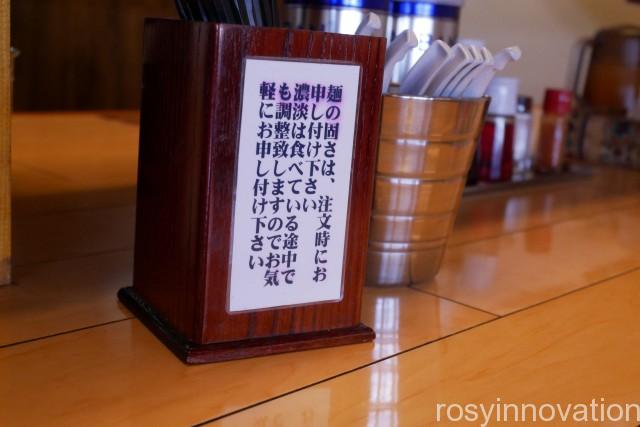 麺の固さは、注文時にお
申し付け下さい
濃淡は食べている途中で
も調整致しますのでお気
軽にお申し付け下さい
rosyinnovation